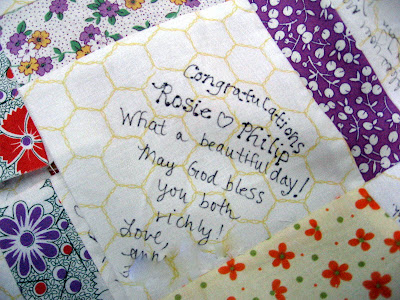 Congratulations
Rosie ♡ Philip
What a beautiful day!
May God bless
you both
richly!
Love,